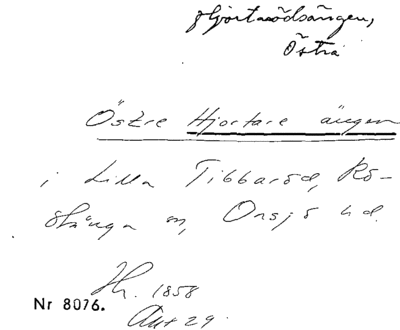 Hjortarödsängen,
Östra
Östre Hjortare ängen
i Lilla Tibbaröd, Rö-
stånga sn, Onsjö hd.
Hr. 1858
Akt 29.
Nr 8076.